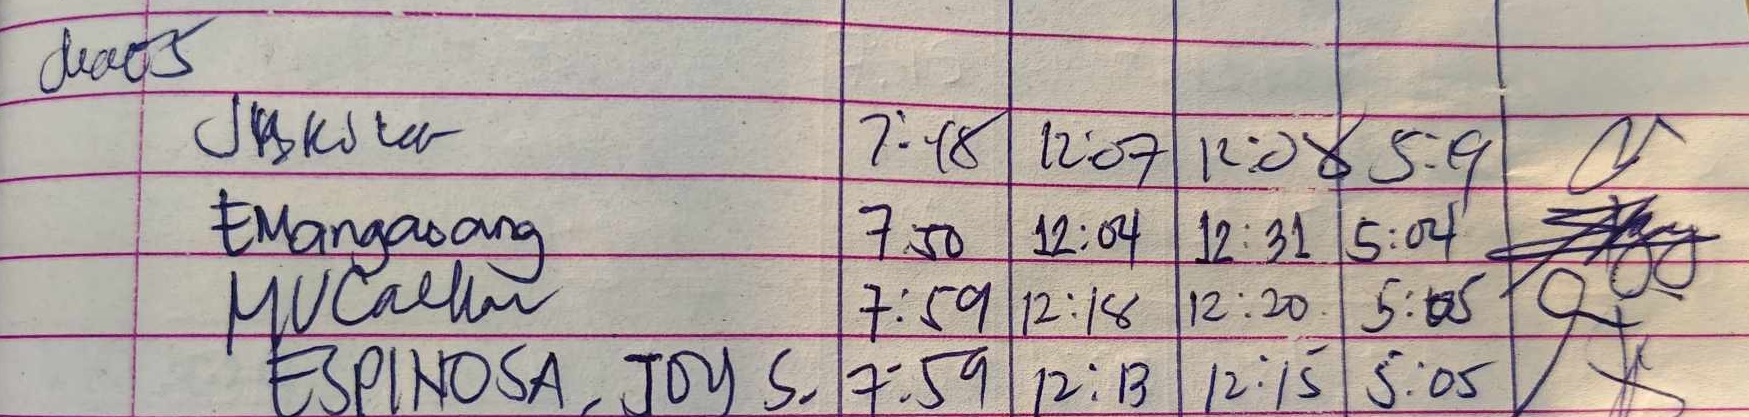 7:48 12:07 12:08 5:9
EMangasang 7:50 12:04 12:31 5:04
MV 7:59 12:18 12:20 5:05
ESPINOSA, JOY S. 7:59 12:13 12:15 5:05